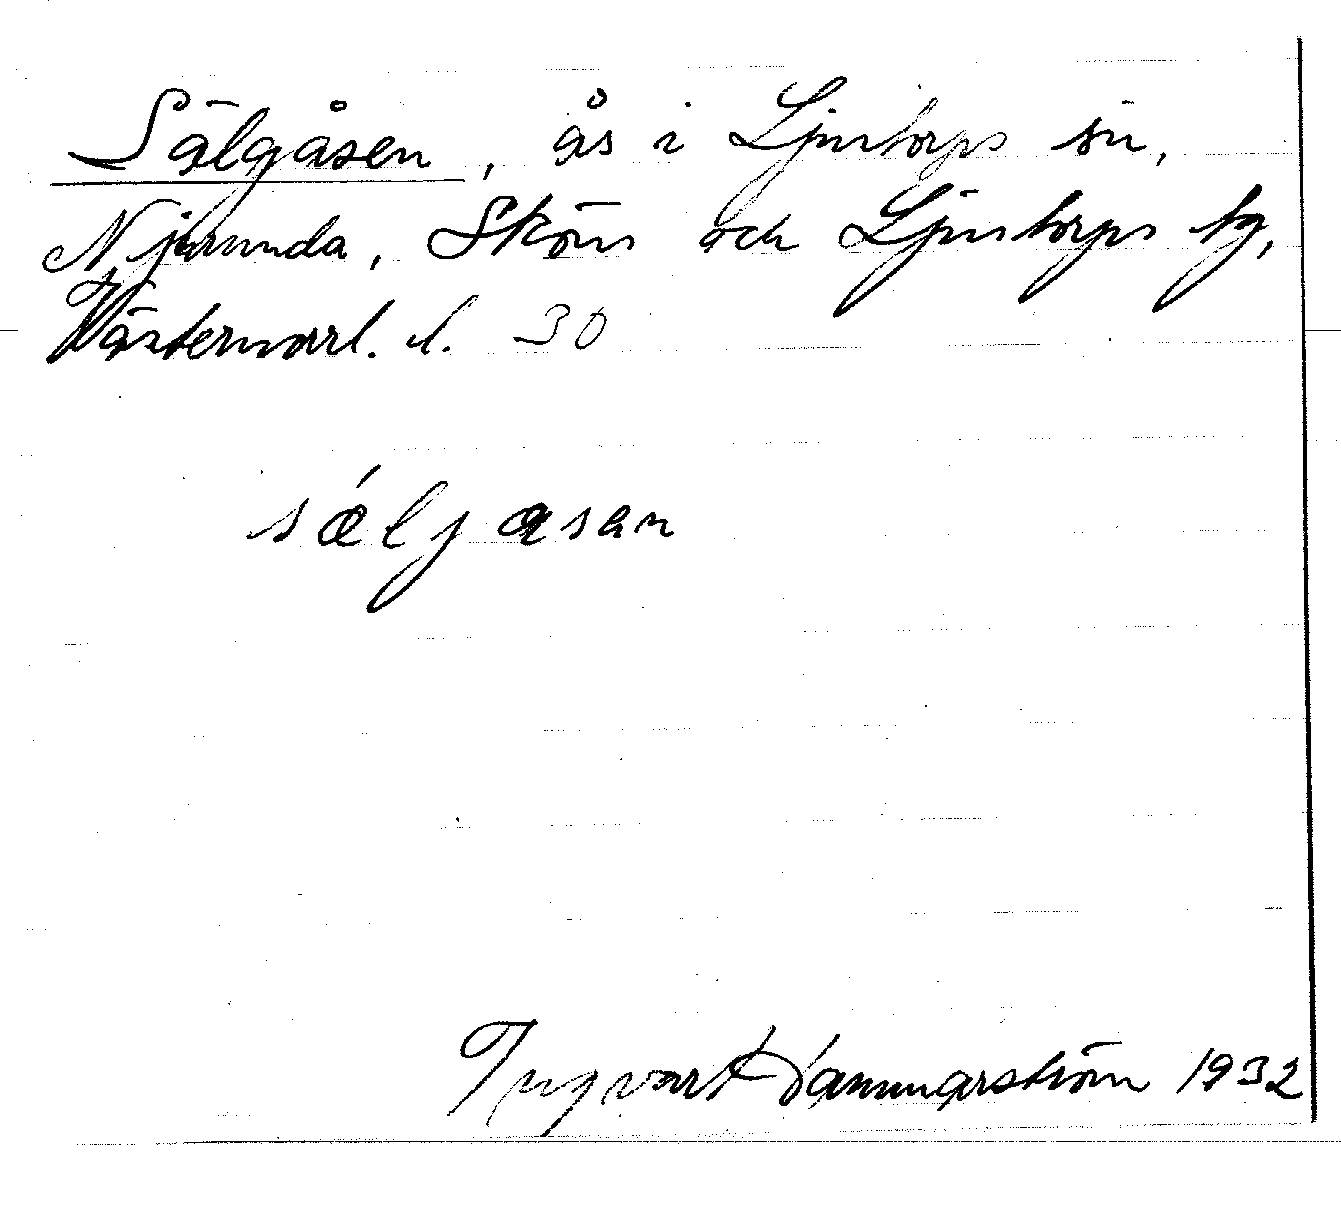 Sälgåsen, ås i Ljustorps sn,
Njurunda, Sköns och Ljustorps tg,
Västernorrl. l. 30
sǽljasan
Ingvar Hammarström 1932